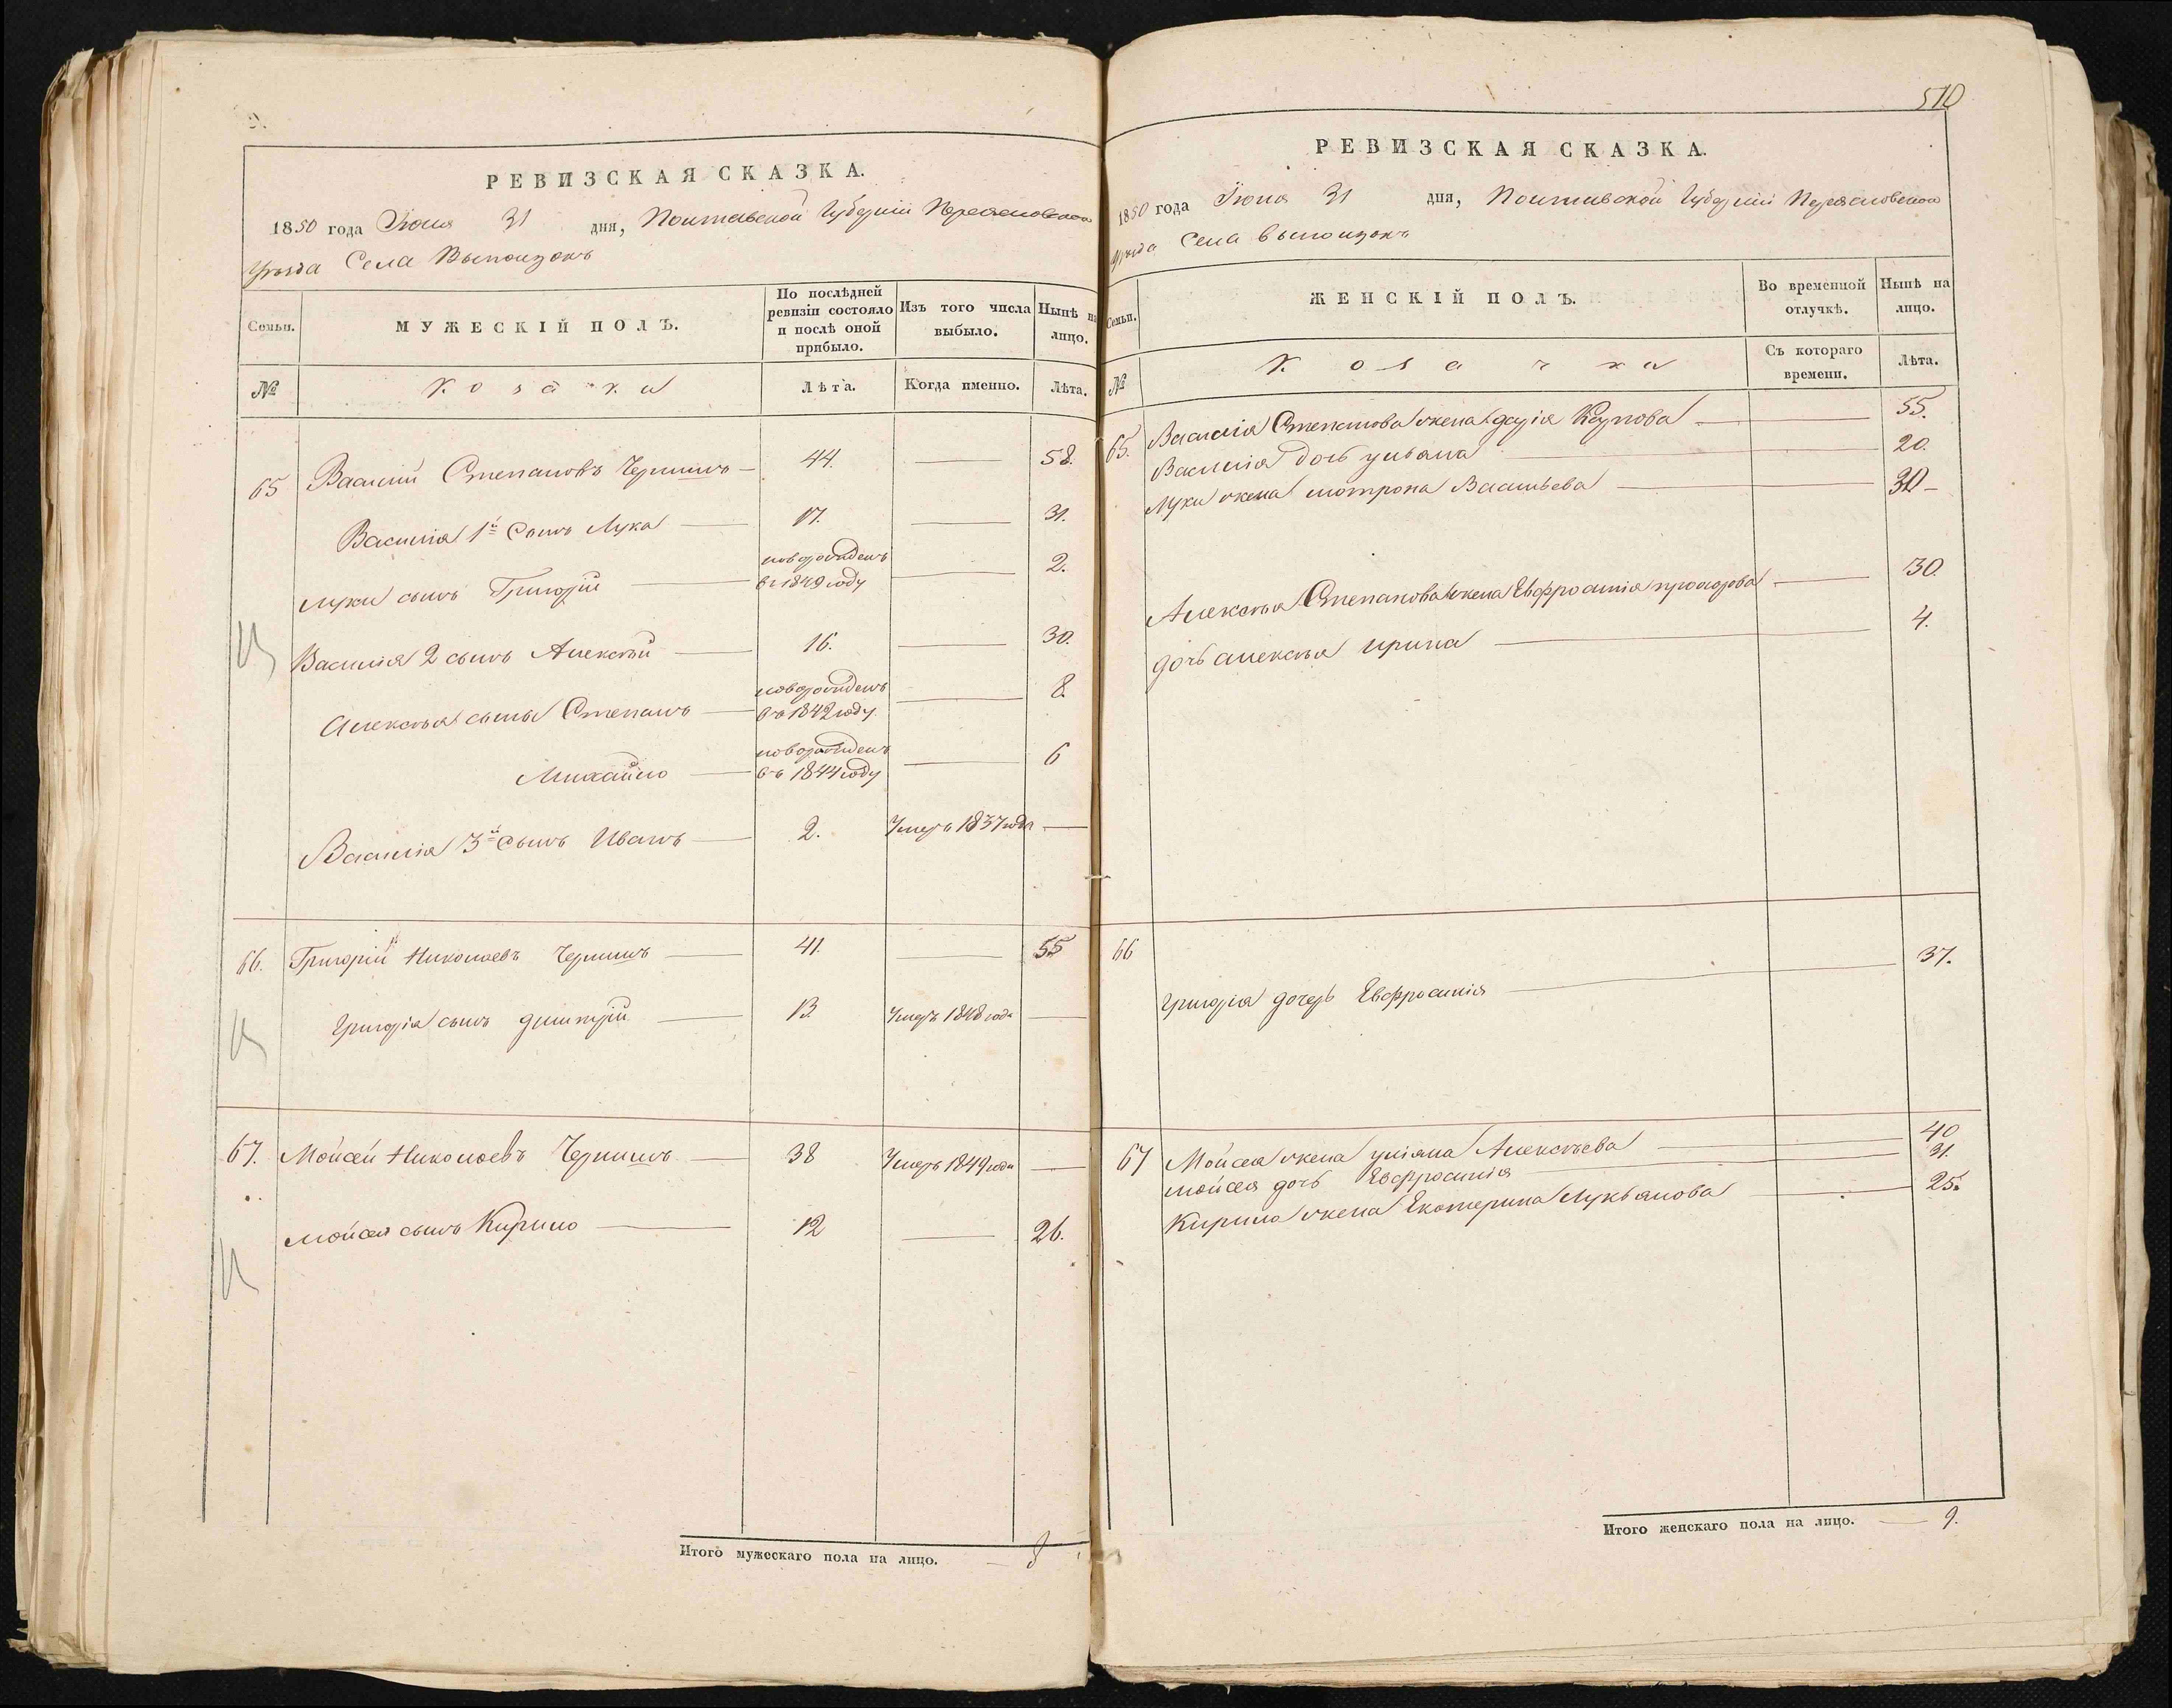 РЕВИЗСКАЯ СКАЗКА.
1850 года Июня 31 дня, Полтавской Губерніи Переяславского
Уѣзда Села Выползокъ
Семьи. МУЖЕСКІЙ ПОЛЪ. По послѣдней ревизіи состояло и послѣ оной прибыло. Изъ того числа выбыло. Нынѣ на лицо.
№ Козаки Лѣта. Когда именно. Лѣта.
65 Василій Степановъ Чернышъ 44. 58.
Василія 1й Сынъ Лука 17. 31.
Луки сынъ Григорій новорожденъ въ 1849 году 2.
Василія 2 сынъ Алексѣй 16. 30.
Алексѣя сыны Степанъ новорожденъ въ 1842 году 8.
Михайло новорожденъ въ 1844 году 6
Василія 3й Сынъ Иванъ 2. Умеръ 1837 года
66. Григорій Николаевъ Чернышъ 41. 55
Григорія сынъ Дмитрій 13. Умеръ 1848 года
67. Мойсей Николаевъ Чернышъ 38 Умеръ 1849 года
Мойсея сынъ Кирило 12 26.
Итого мужескаго пола на лицо. 8
510
РЕВИЗСКАЯ СКАЗКА.
1850 года Июня 31 дня, Полтавской Губерніи Переясловского
Уѣзда Села Выползокъ
Семьи. ЖЕНСКІЙ ПОЛЪ. Во временной отлучкѣ. Нынѣ на лицо.
№ Козачки Съ котораго времени. Лѣта.
65. Василія Степанова жена Дарія Карпова 55.
Василія дочь Ульяна 20.
Луки жена Мотрона Васильева 30
Алексѣя Степанова жена Евфросинія Прохорова 30.
дочь Алексѣя Ирина 4.
66 Григорія дочерь Евфросинія 37.
67 Мойсея жена Уліяна Алексѣева 40
Мойсея дочь Евфросинія 21.
Кирила жена Екатерина Лукьянова 25.
Итого женскаго пола на лицо. 9.